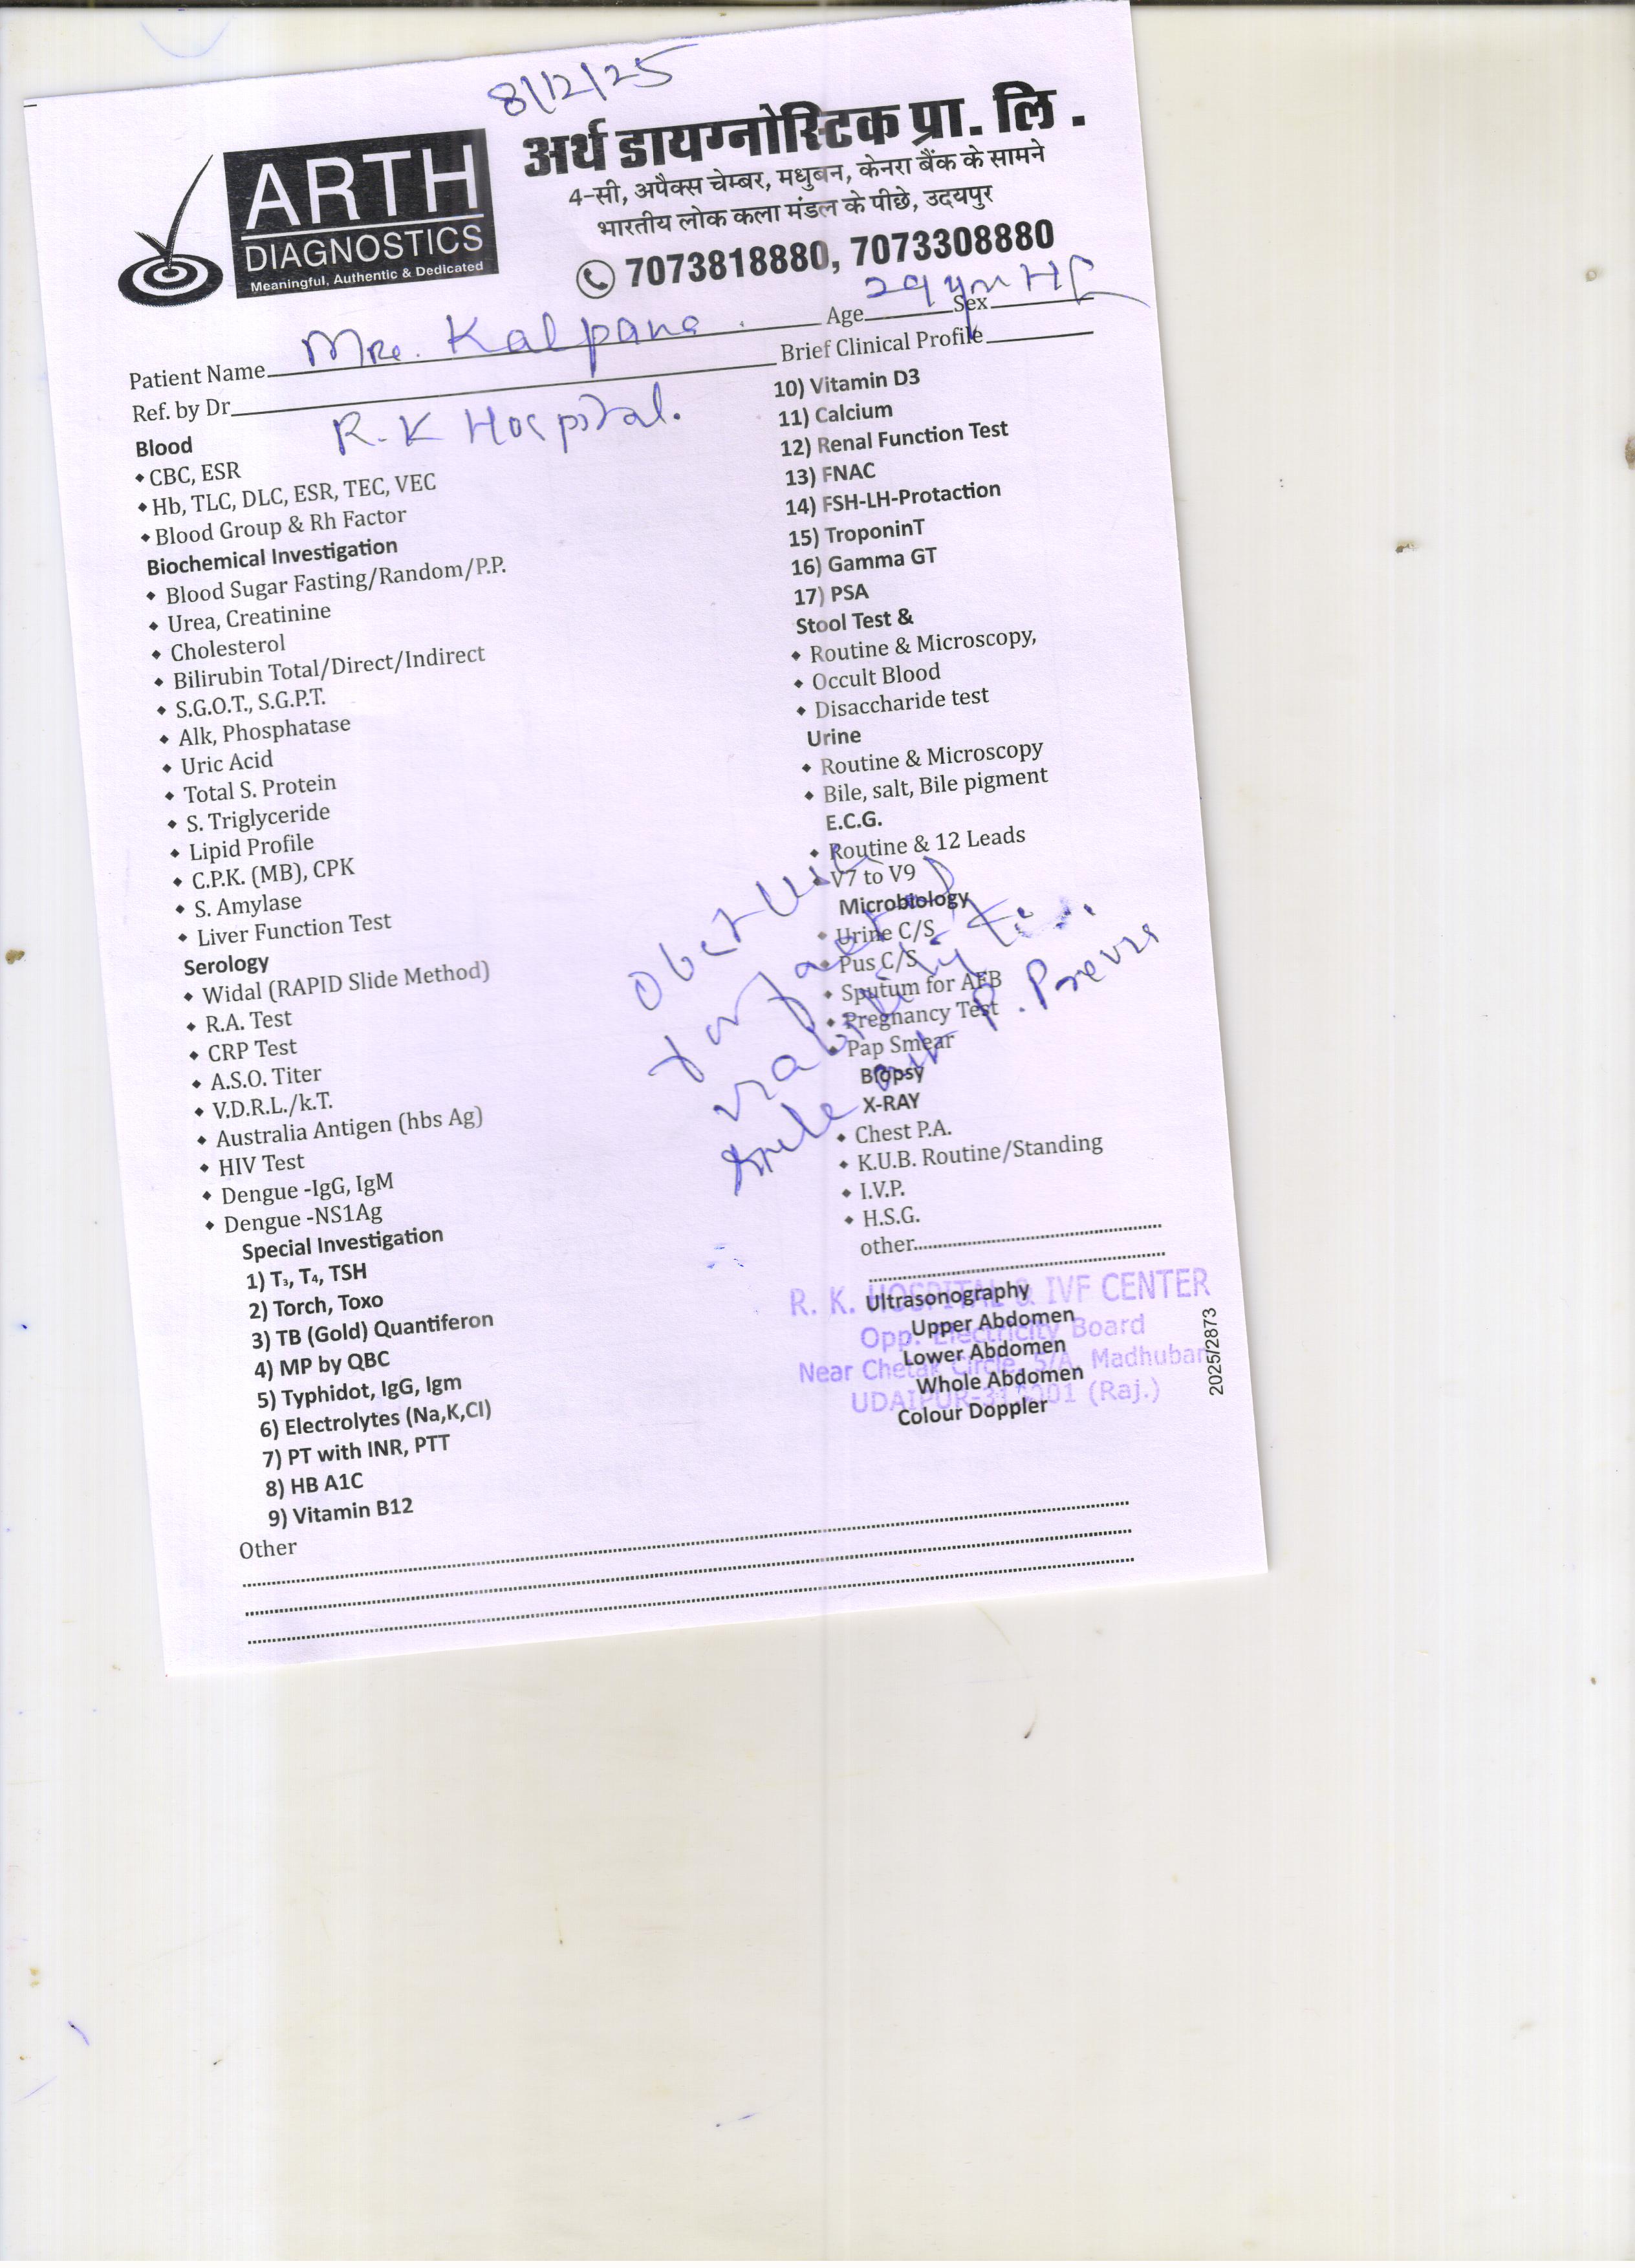 8/12/25
ARTH
DIAGNOSTICS
Meaningful, Authentic & Dedicated
अर्थ डायग्नोस्टिक प्रा. लि .
4-सी, अपैक्स चेम्बर, मधुबन, केनरा बैंक के सामने
भारतीय लोक कला मंडल के पीछे, उदयपुर
7073818880, 7073308880
Patient Name Mrs. Kalpana Age 29 yrs Sex
Ref. by Dr. R.K Hospital. Brief Clinical Profile
Blood
CBC, ESR
Hb, TLC, DLC, ESR, TEC, VEC
Blood Group & Rh Factor
Biochemical Investigation
Blood Sugar Fasting/Random/P.P.
Urea, Creatinine
Cholesterol
Bilirubin Total/Direct/Indirect
S.G.O.T., S.G.P.T.
Alk, Phosphatase
Uric Acid
Total S. Protein
S. Triglyceride
Lipid Profile
C.P.K. (MB), CPK
S. Amylase
Liver Function Test
Serology
Widal (RAPID Slide Method)
R.A. Test
CRP Test
A.S.O. Titer
V.D.R.L./k.T.
Australia Antigen (hbs Ag)
HIV Test
Dengue -IgG, IgM
Dengue -NS1Ag
Special Investigation
1) T₃, T₄, TSH
2) Torch, Toxo
3) TB (Gold) Quantiferon
4) MP by QBC
5) Typhidot, IgG, Igm
6) Electrolytes (Na,K,Cl)
7) PT with INR, PTT
8) HB A1C
9) Vitamin B12
10) Vitamin D3
11) Calcium
12) Renal Function Test
13) FNAC
14) FSH-LH-Protaction
15) TroponinT
16) Gamma GT
17) PSA
Stool Test &
Routine & Microscopy,
Occult Blood
Disaccharide test
Urine
Routine & Microscopy
Bile, salt, Bile pigment
E.C.G.
Routine & 12 Leads
V7 to V9
Microbiology
Urine C/S
Pus C/S
Sputum for AFB
Pregnancy Test
Pap Smear
Biopsy
X-RAY
Chest P.A.
K.U.B. Routine/Standing
I.V.P.
H.S.G.
other
Obst USG
for fetal
viability
out P. Previa
Ultrasonography
Upper Abdomen
Lower Abdomen
Whole Abdomen
Colour Doppler
R. K. HOSPITAL & IVF CENTER
Opp. Electricity Board
Near Chetak Circle, 5/A, Madhuban
UDAIPUR-313001 (Raj.)
2025/2873
Other